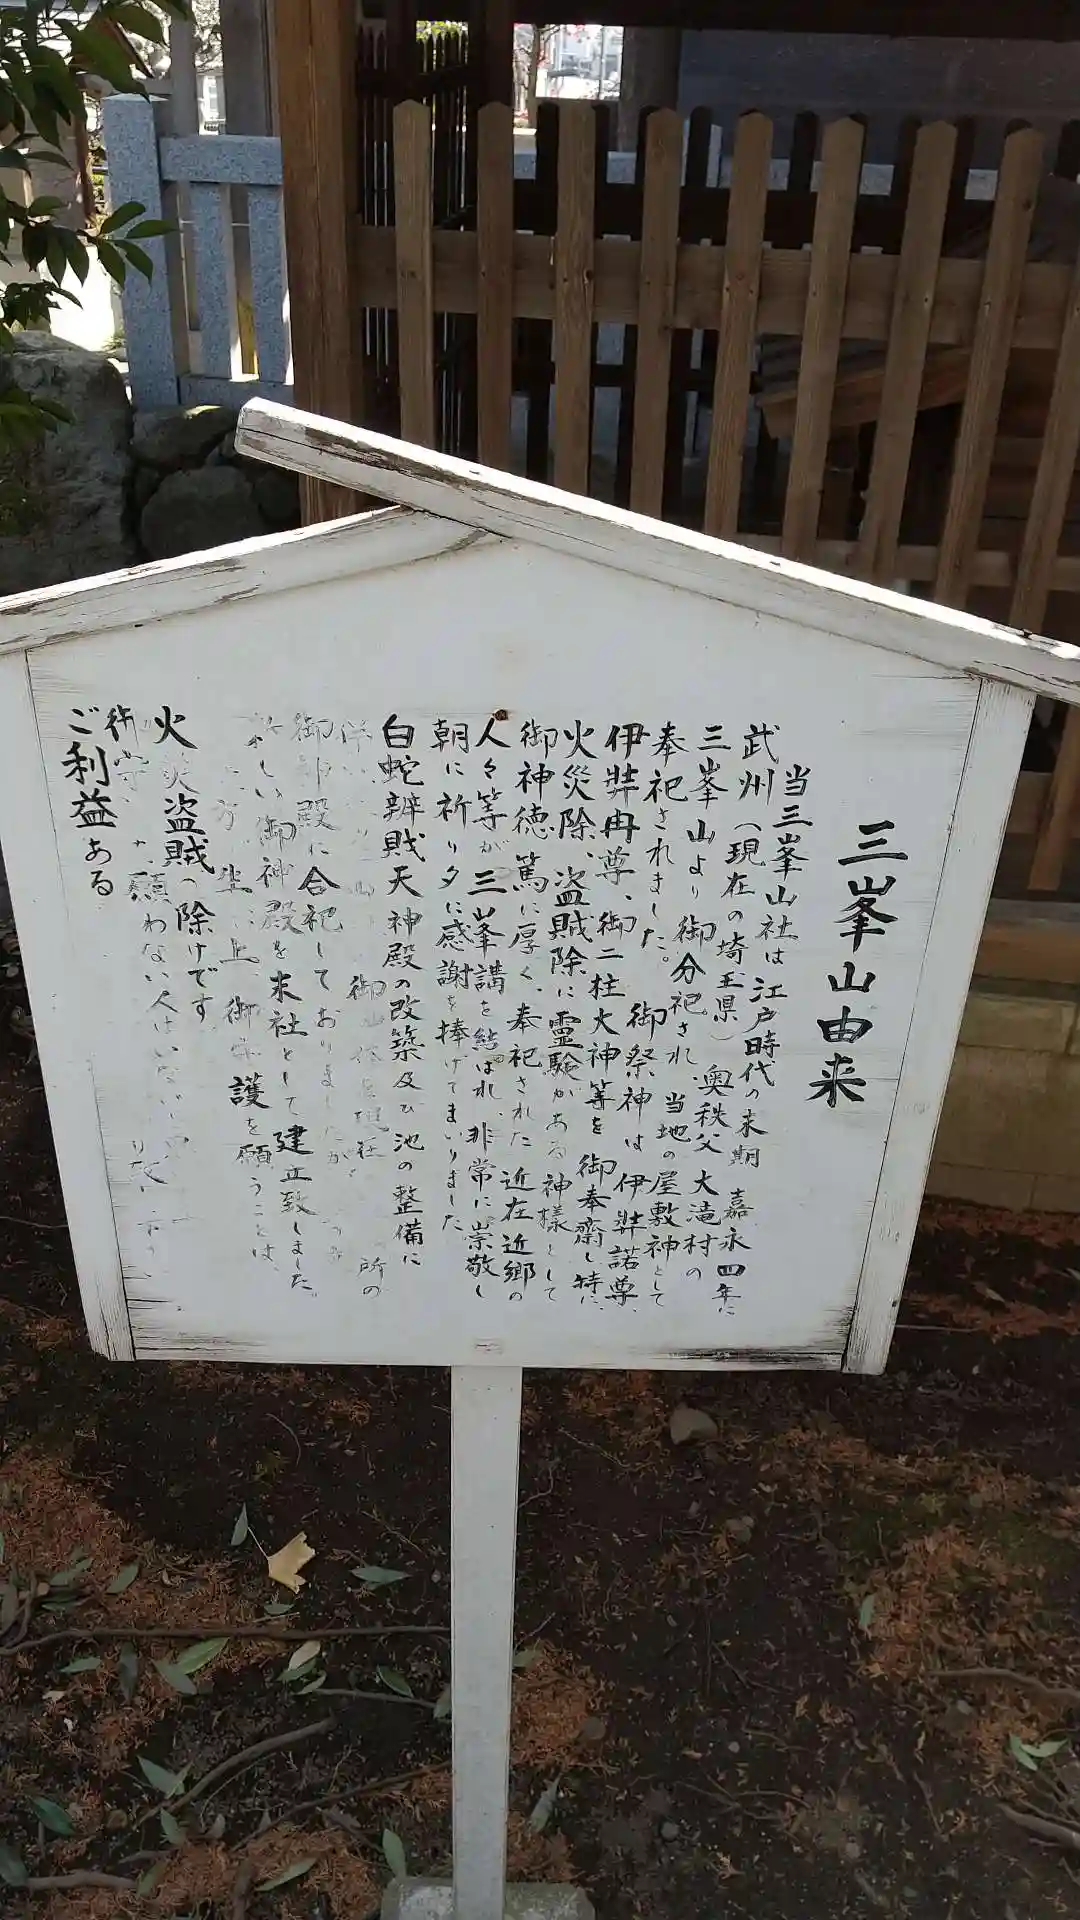 三峯山由来
当三峯山社は江戸時代の末期 嘉永四年に
武州（現在の埼玉県）奥秩父 大滝村の
三峯山より御分祀され、当地の屋敷神として
奉祀されました。 御祭神は 伊弉諾尊、
伊弉冉尊、御二柱大神等を御奉齋し特に、
火災除、盗賊除に霊験がある神様として
御神徳篤に厚く、奉祀された近在近郷の
人々等が三峯講を結ばれ、非常に崇敬し
朝に祈り夕に感謝を捧げてまいりました。
白蛇辨財天神殿の改築及び池の整備に
御 現在 所の
御神殿に合祀しておりましたが
新しい御神殿を末社として建立致しました。
御守護を願うことは、
火災盗賊の除けです
願わない人はいない
ご利益ある